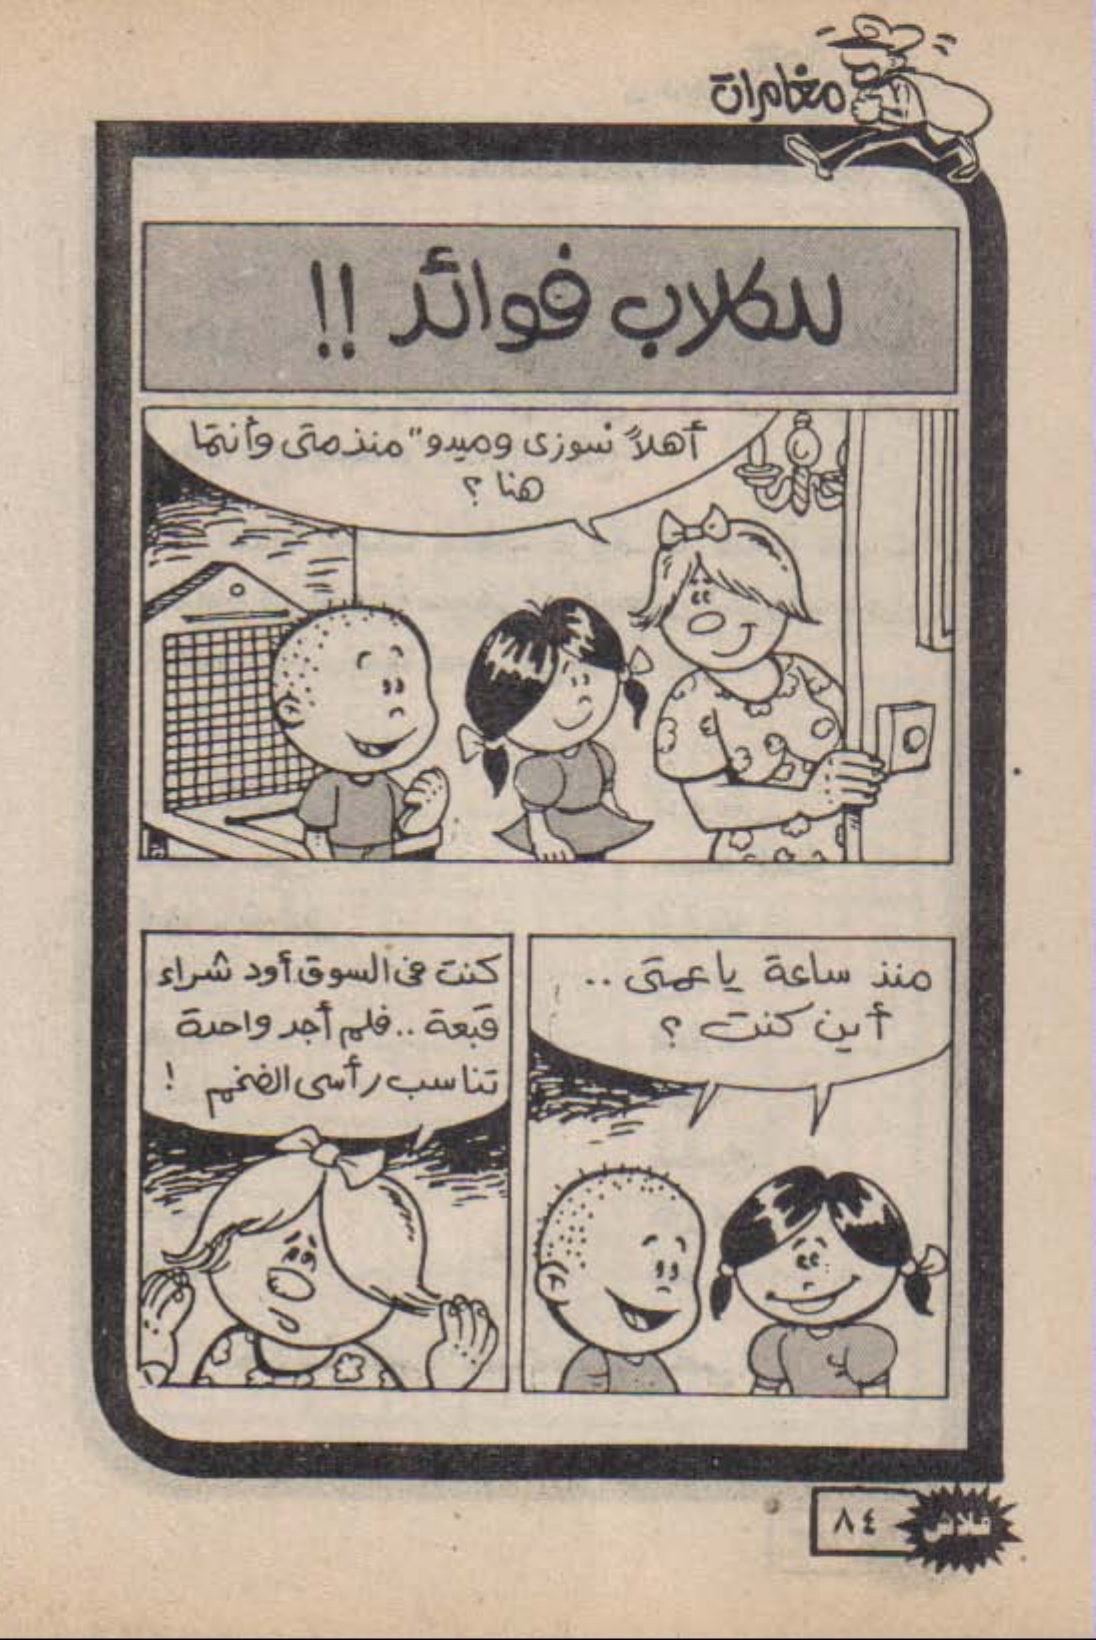 مغامرات
للكلاب فوائد !!
أهلاً "سوزى وميدو" منذ متى وأنتما
هنا ؟
منذ ساعة يا عمتى ..
أين كنت ؟
كنت فى السوق أود شراء
قبعة .. فلم أجد واحدة
تناسب رأسى الضخم !
فلاش
٨٤